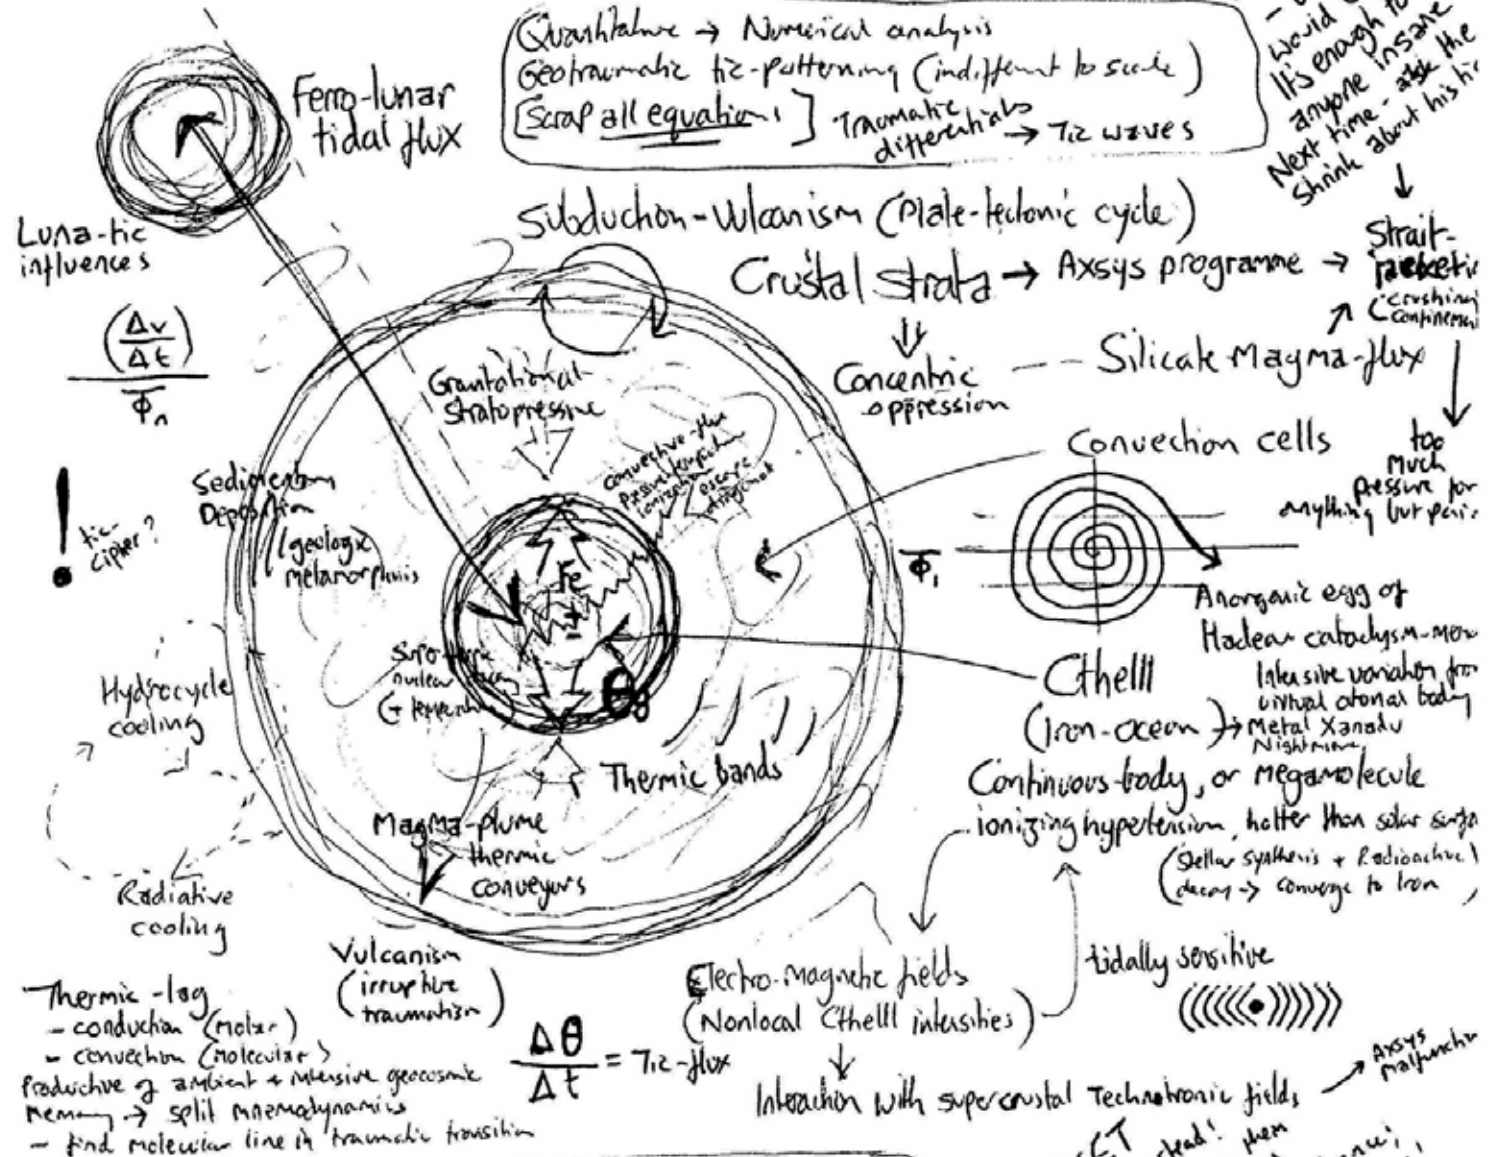 Quantitative → Numerical analysis
Geotraumatic tic-patterning (indifferent to scale)
[Scrap all equations] Traumatic
differentials → Tic waves
would
It's enough to
anyone insane
Next time - ask the
shrink about his tic
Ferro-lunar
tidal flux
Luna-tic
influences
Subduction-Vulcanism (Plate-tectonic cycle)
Crustal Strata → Axsys programme →
Strait-
(crushing
confinement
Concentric
oppression
Silicate Magma-flux
Δv
Δt
Φn
Gravitational
Stratopressure
convective-flux
escape
Convection cells
too
much
pressure for
anything but panic
Sedimentary
Deposition
(geologic
metamorphosis
!
tic-
cipher?
Fe
+
-
Φ1
Anorganic egg of
Hadean cataclysm-
Cthelll
Intensive variation from
virtual atonal body
(Iron-ocean) → Metal Xanadu
Nightmare
nuclear
θ8
Hydrocycle
cooling
Thermic bands
Continuous-body, or megamolecule
ionizing hypertension, hotter than solar
(Stellar synthesis + Radioactive
decay → converge to Iron
Magma-plume
thermic
conveyors
Radiative
cooling
Vulcanism
(irruptive
traumatism)
Electro-magnetic fields
(Nonlocal Cthelll intensities)
tidally sensitive
(((((•)))))
Thermic-lag
- conduction (molar)
- convection (molecular)
Productive of ambient + intensive geocosmic
memory → split mnemodynamics
- find molecular line in traumatic transition
Δθ
Δt = Tic-flux
Interaction with supercrustal Technotronic fields
Axsys
malfunction
dead!
them